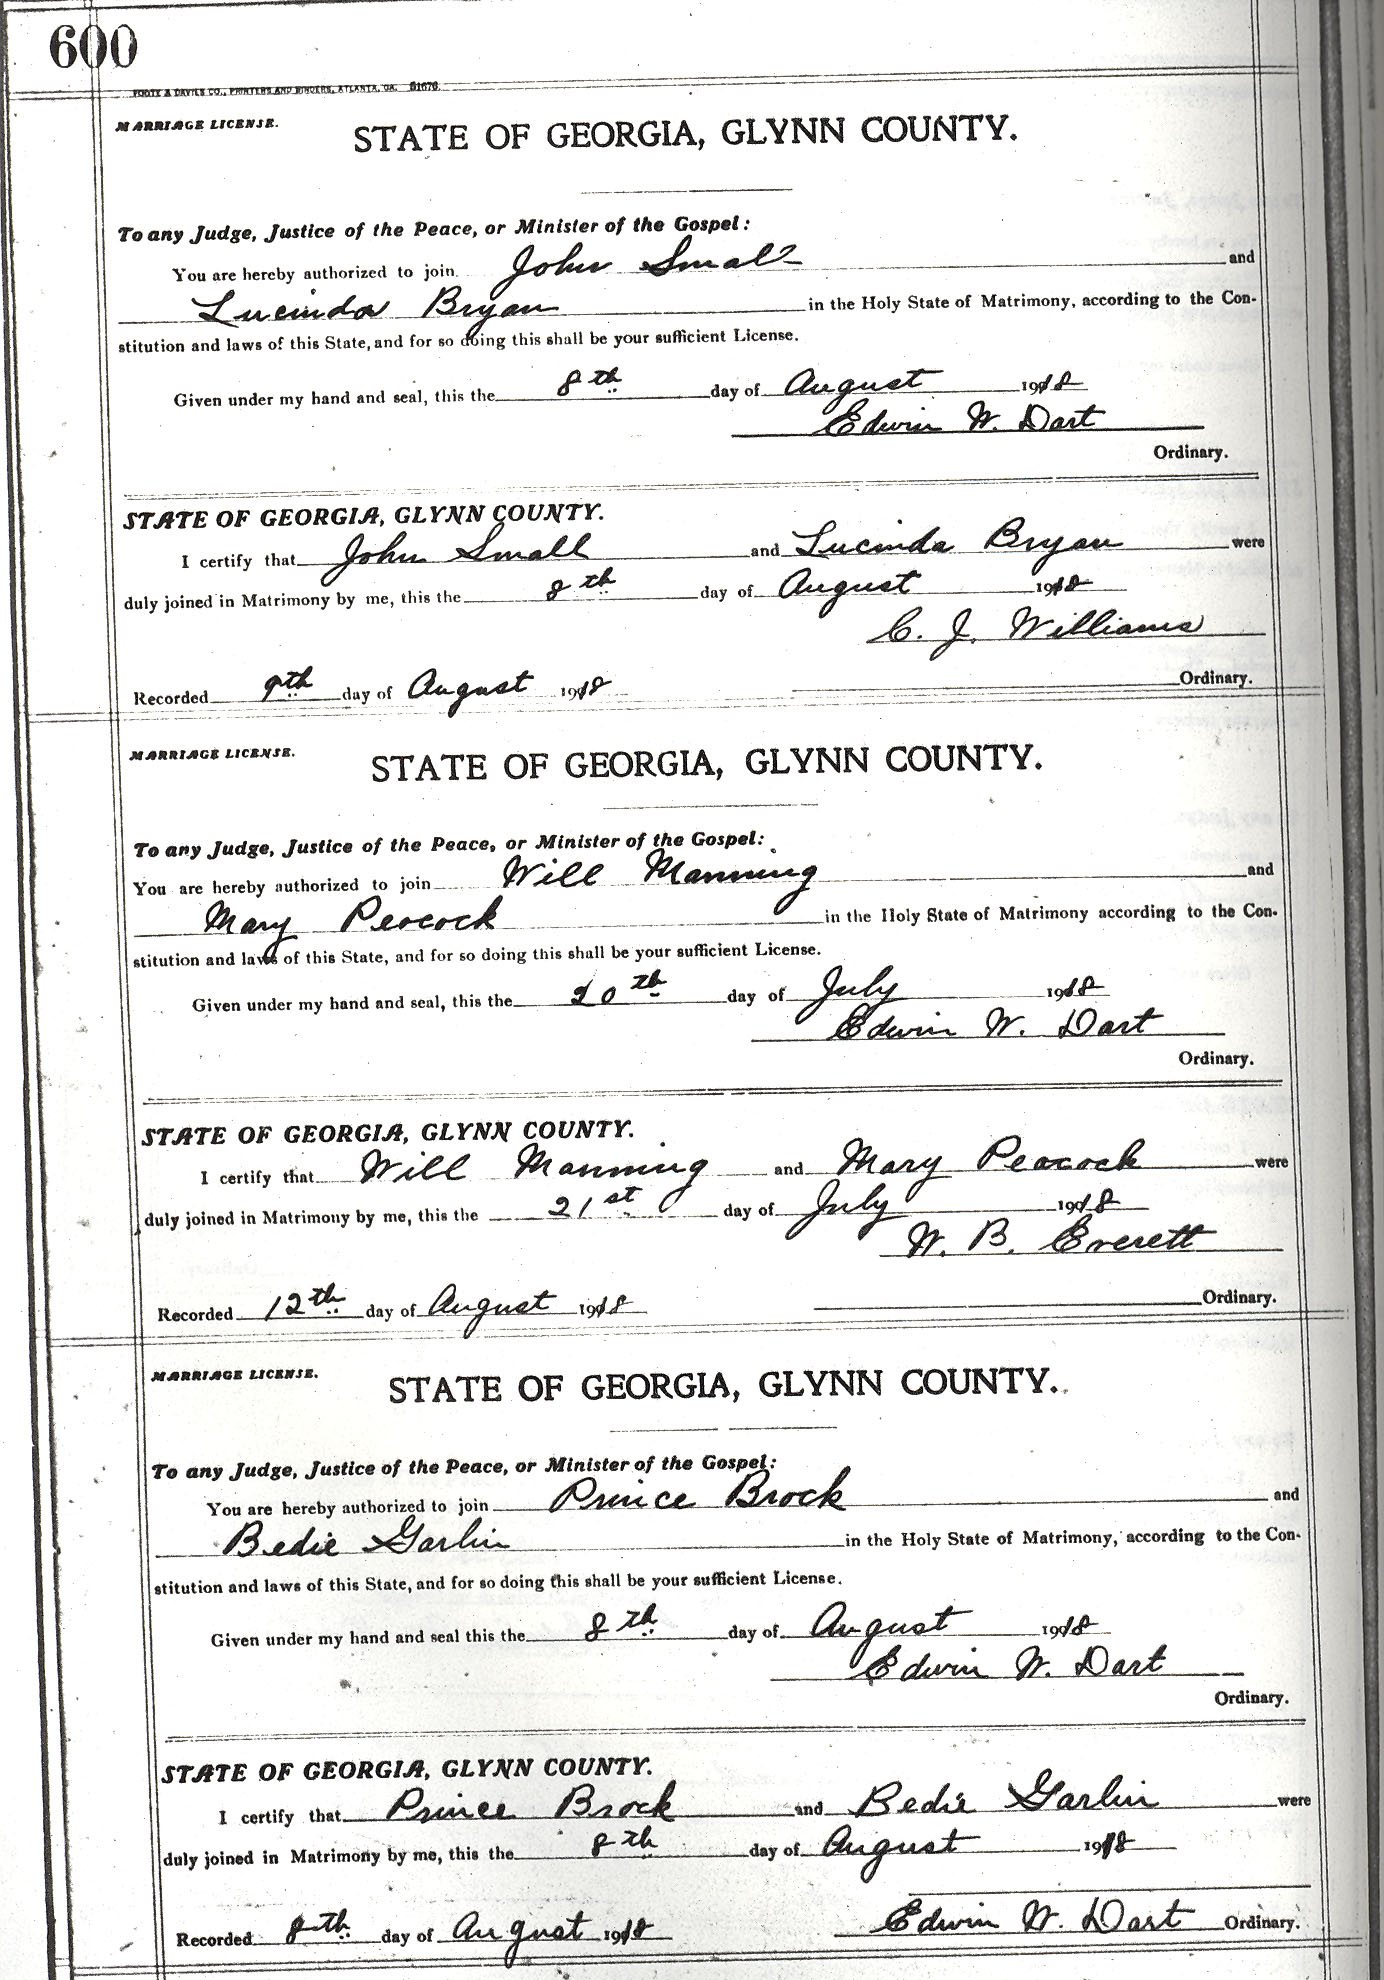 600
FOOTE & DAVIES CO., PRINTERS AND BINDERS, ATLANTA, GA. 51676.
MARRIAGE LICENSE.
STATE OF GEORGIA, GLYNN COUNTY.
To any Judge, Justice of the Peace, or Minister of the Gospel:
You are hereby authorized to join John Small and
Lucinda Bryan in the Holy State of Matrimony, according to the Con-
stitution and laws of this State, and for so doing this shall be your sufficient License.
Given under my hand and seal, this the 8th day of August 1918
Edwin W. Dart
Ordinary.
STATE OF GEORGIA, GLYNN COUNTY.
I certify that John Small and Lucinda Bryan were
duly joined in Matrimony by me, this the 8th day of August 1918
C. J. Williams
Recorded 9th day of August 1918 Ordinary.
MARRIAGE LICENSE.
STATE OF GEORGIA, GLYNN COUNTY.
To any Judge, Justice of the Peace, or Minister of the Gospel:
You are hereby authorized to join Will Manning and
Mary Peocock in the Holy State of Matrimony according to the Con-
stitution and laws of this State, and for so doing this shall be your sufficient License.
Given under my hand and seal, this the 20th day of July 1918
Edwin W. Dart
Ordinary.
STATE OF GEORGIA, GLYNN COUNTY.
I certify that Will Manning and Mary Peocock were
duly joined in Matrimony by me, this the 21st day of July 1918
W. B. Everett
Recorded 12th day of August 1918 Ordinary.
MARRIAGE LICENSE.
STATE OF GEORGIA, GLYNN COUNTY.
To any Judge, Justice of the Peace, or Minister of the Gospel:
You are hereby authorized to join Prince Brock and
Bedie Garlin in the Holy State of Matrimony, according to the Con-
stitution and laws of this State, and for so doing this shall be your sufficient License.
Given under my hand and seal this the 8th day of August 1918
Edwin W. Dart
Ordinary.
STATE OF GEORGIA, GLYNN COUNTY.
I certify that Prince Brock and Bedie Garlin were
duly joined in Matrimony by me, this the 8th day of August 1918
Recorded 8th day of August 1918 Edwin W. Dart Ordinary.